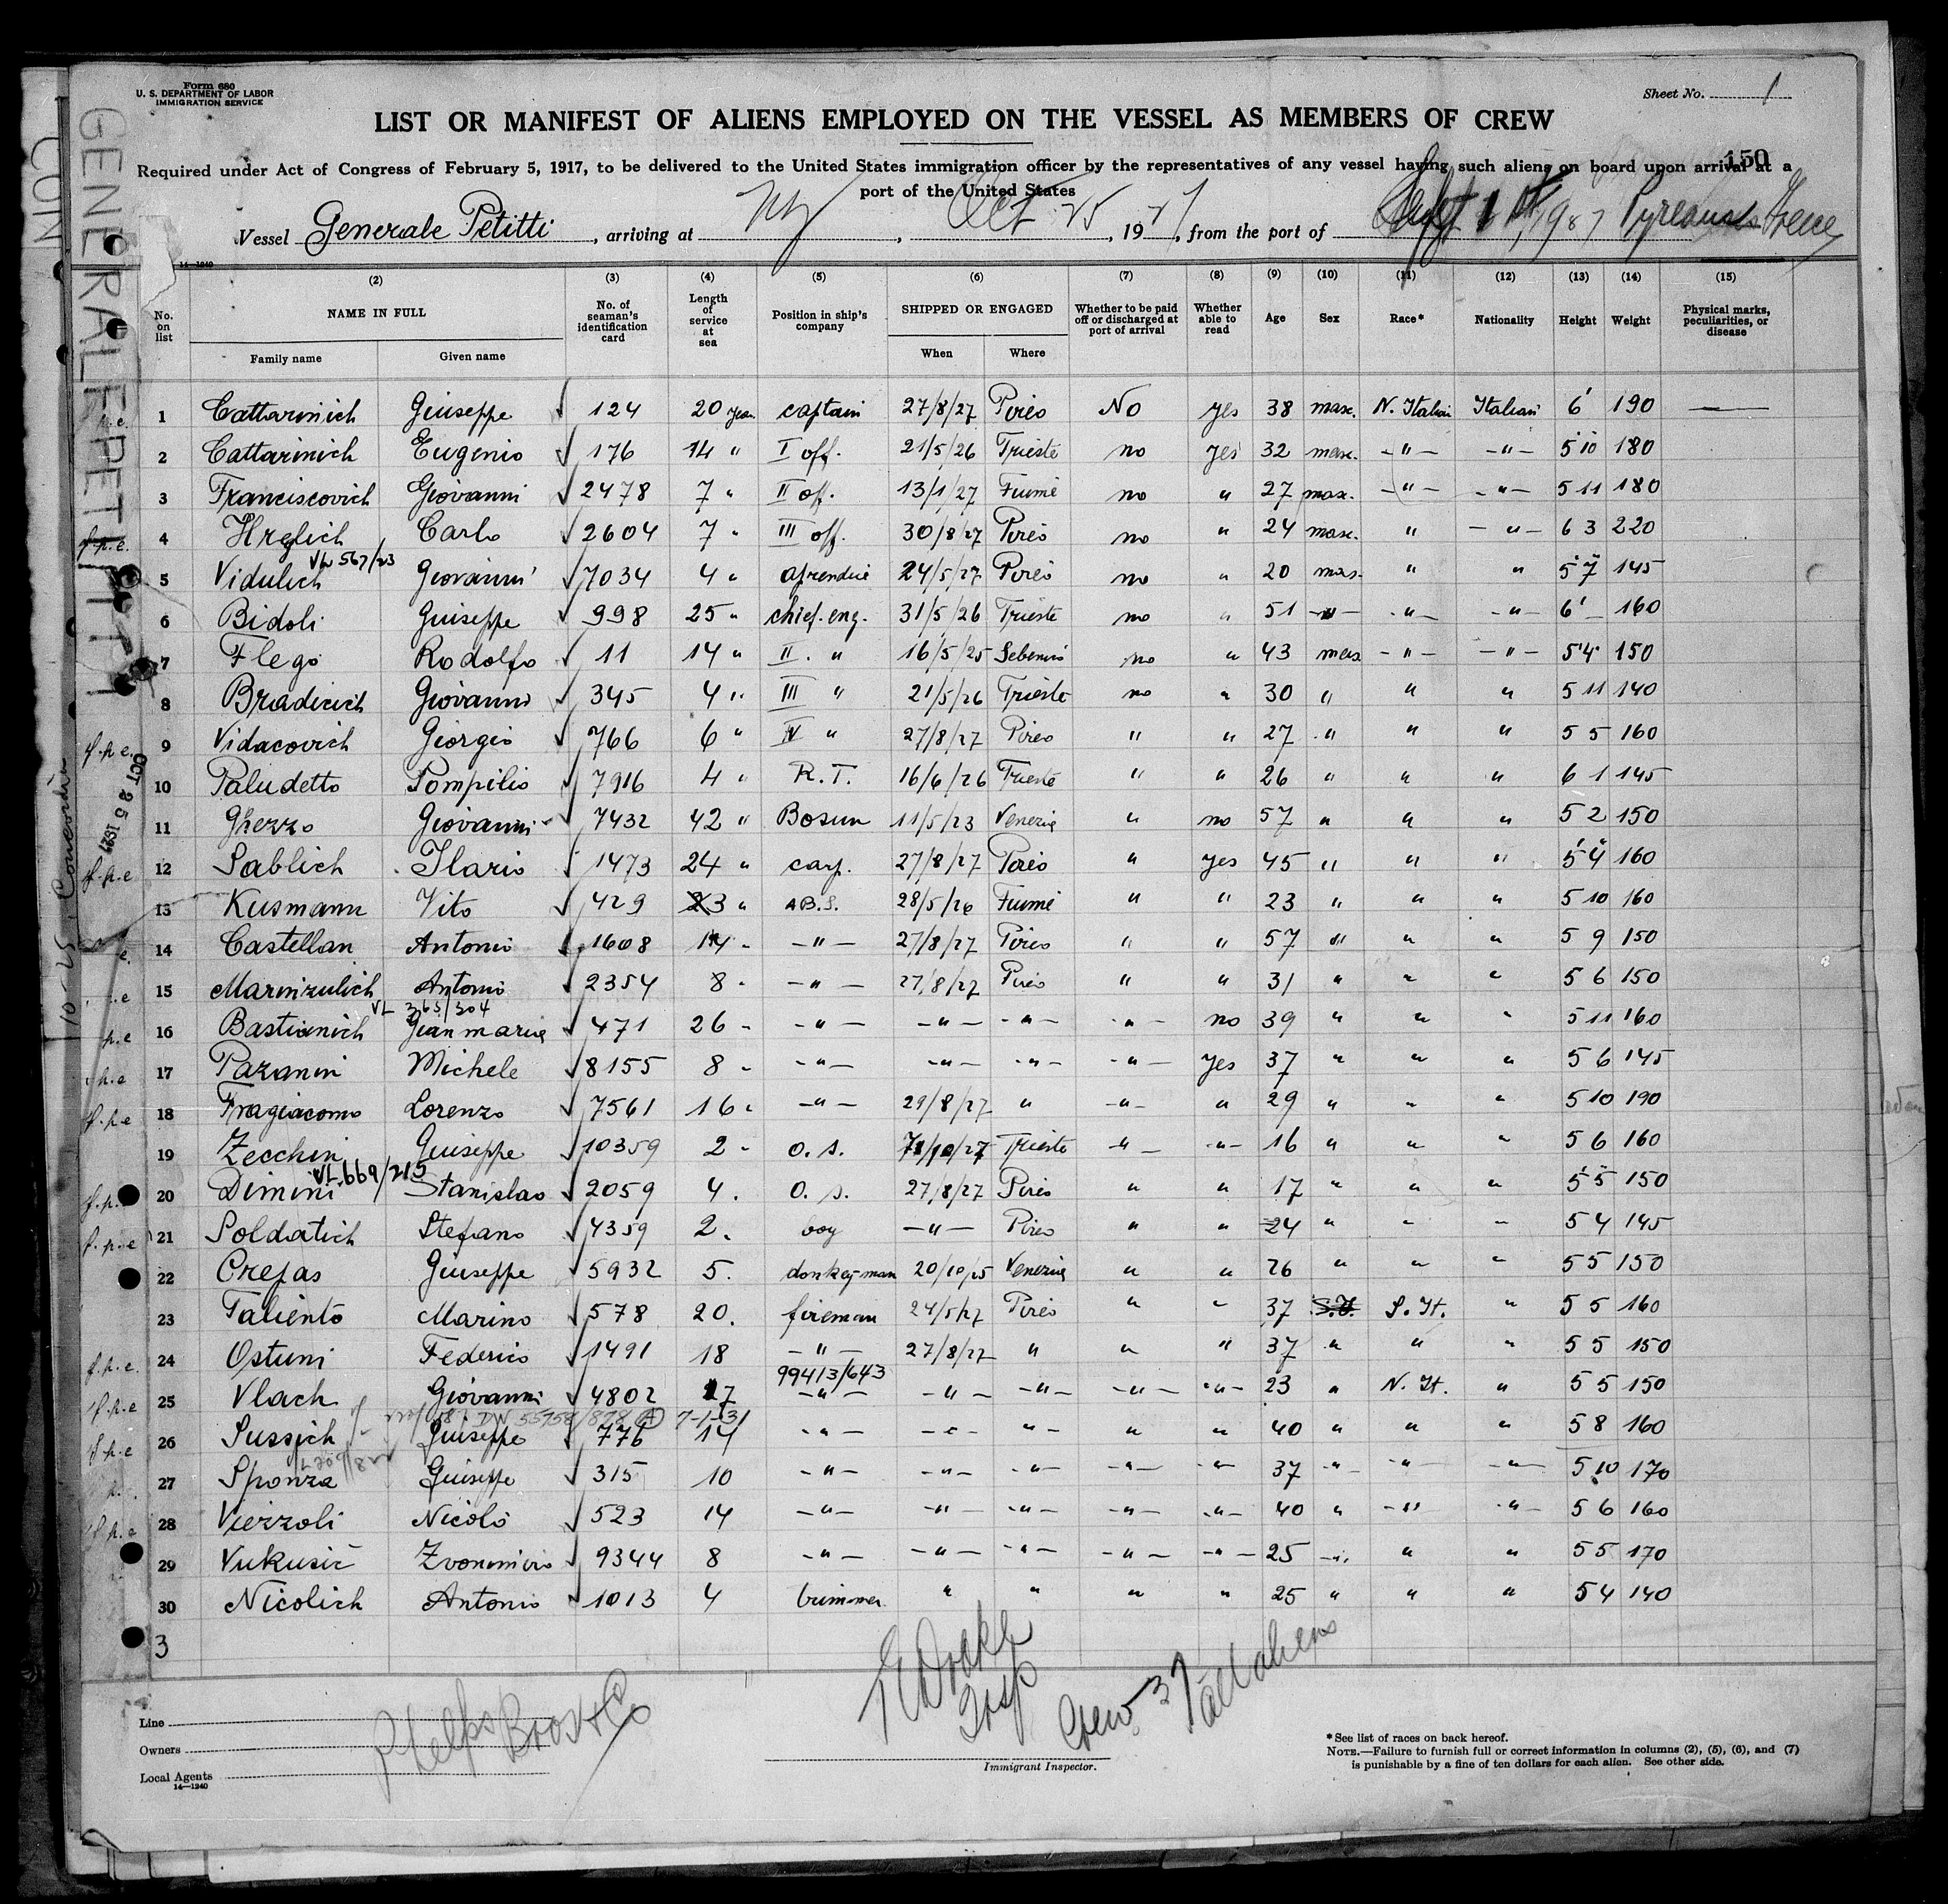 Form 680
U. S. DEPARTMENT OF LABOR
IMMIGRATION SERVICE
Sheet No. 1
LIST OR MANIFEST OF ALIENS EMPLOYED ON THE VESSEL AS MEMBERS OF CREW
Required under Act of Congress of February 5, 1917, to be delivered to the United States immigration officer by the representatives of any vessel having such aliens on board upon arrival at a
150
port of the United States
Vessel Generale Petitti, arriving at NY, Oct 25, 1927, from the port of
GENERAL PETITTI
OCT 25 1927
14—1240
No. on list
(2) NAME IN FULL Family name Given name
(3) No. of seaman's identification card
(4) Length of service at sea
(5) Position in ship's company
(6) SHIPPED OR ENGAGED When Where
(7) Whether to be paid off or discharged at port of arrival
(8) Whether able to read
(9) Age
(10) Sex
(11) Race*
(12) Nationality
(13) Height
(14) Weight
(15) Physical marks, peculiarities, or disease
1 Cattarinich Giuseppe √ 124 20 years captain 27/8/27 Pireo No yes 38 masc. N. Italian Italian 6' 190 —
2 Cattarinich Eugenio √ 176 14 " I off. 21/5/26 Trieste no yes 32 masc. -"- -"- 5 10 180
3 Franciscovich Giovanni √ 2478 7 " II off. 13/1/27 Fiume no " 27 masc. -"- -"- 5 11 180
f.p.e. 4 Hreglich Carlo √ 2604 7 " III off. 30/8/27 Pireo no " 24 masc. " -"- 6 3 220
5 Vidulich Giovanni √ 7034 4 " 24/5/27 Pireo no " 20 mas. " " 5 7 145
6 Bidoli Giuseppe √ 998 25 " chief. eng. 31/5/26 Trieste no " 51 -"- -"- -"- 6' - 160
7 Flego Rodolfo √ 11 14 " II. " 16/5/25 no " 43 mas -"- -"- 5'4" 150
8 Bradicich Giovanni √ 345 4 " III " 21/5/26 Trieste no " 30 " " " 5 11 140
f.p.e. 9 Vidacovich Giorgio √ 766 6 " IV " 27/8/27 Pireo " " 27 " " " 5 5 160
10 Paludetto Pompilio √ 7916 4 " R.T. 16/6/26 Trieste " " 26 " " " 6 1 145
11 Ghezzo Giovanni √ 7432 42 " Bosun 11/5/23 Venezia " no 57 " " " 5 2 150
f.p.e 12 Sablich Ilario √ 1473 24 " carp. 27/8/27 Pireo " yes 45 " " " 5 4 160
13 Kusmann Vito √ 429 3 " AB.S. 28/5/26 Fiume " " 23 " " " 5 10 160
14 Castellan Antonio √ 1608 14 " -"- 27/8/27 Pireo " " 57 " " " 5 9 150
15 Marinzulich Antonio √ 2354 8 " -"- 27/8/27 Pireo " " 31 " " " 5 6 150
16 Bastianich Gianmaria √ 471 26 " -"- -"- -"- -"- no 39 " " " 5 11 160
17 Pazanin Michele √ 8155 8 " -"- -"- -"- -"- yes 37 " " " 5 6 145
f.p.e 18 Fragiacomo Lorenzo √ 7561 16 " -"- 29/8/27 " -"- " 29 " " " 5 10 190
19 Zecchin Giuseppe √ 10359 2 " o. s. Trieste -"- -"- 16 " " " 5 6 160
20 Dimini Stanislao √ 2059 4. O. s. 27/8/27 Pireo " " 17 " " " 5 5 150
f.p.e 21 Soldatich Stefano √ 4359 2. boy -"- Pireo " " 24 " " " 5 4 145
22 Crepas Giuseppe √ 5932 5. donkey-man 20/10/25 Venezia " " 26 " " " 5 5 150
23 Taliento Marino √ 578 20. fireman 24/5/27 Pireo " " 37 S. It. " 5 5 160
f.p.e. 24 Ostuni Federico √ 1491 18 -"- 27/8/27 " " " 37 " " " 5 5 150
99413/643
f.p.e 25 Vlach Giovanni √ 4802 17 -"- -"- -"- -"- -"- 23 " N. It. " 5 5 150
7-1-31
f.p.e 26 Sussich Giuseppe √ 776 14 -"- -"- -"- " " 40 " " " 5 8 160
27 Sponza Giuseppe √ 315 10 -"- -"- -"- -"- -"- 37 -"- -"- -"- 5 10 170
f.p.e 28 Viezzoli Nicolò √ 523 14 -"- -"- -"- -"- -"- 40 " -"- -"- 5 6 160
29 Vukusić Zvonimiro √ 9344 8 -"- -"- -"- -"- -"- 25 -"- " " 5 5 170
30 Nicolich Antonio √ 1013 4 trimmer " " " " 25 " " " 5 4 140
3
Phelps Bros & Co
Insp
Crew 37 all aliens
Line
Owners
Local Agents
14—1240
Immigrant Inspector.
*See list of races on back hereof.
NOTE.—Failure to furnish full or correct information in columns (2), (5), (6), and (7)
is punishable by a fine of ten dollars for each alien. See other side.